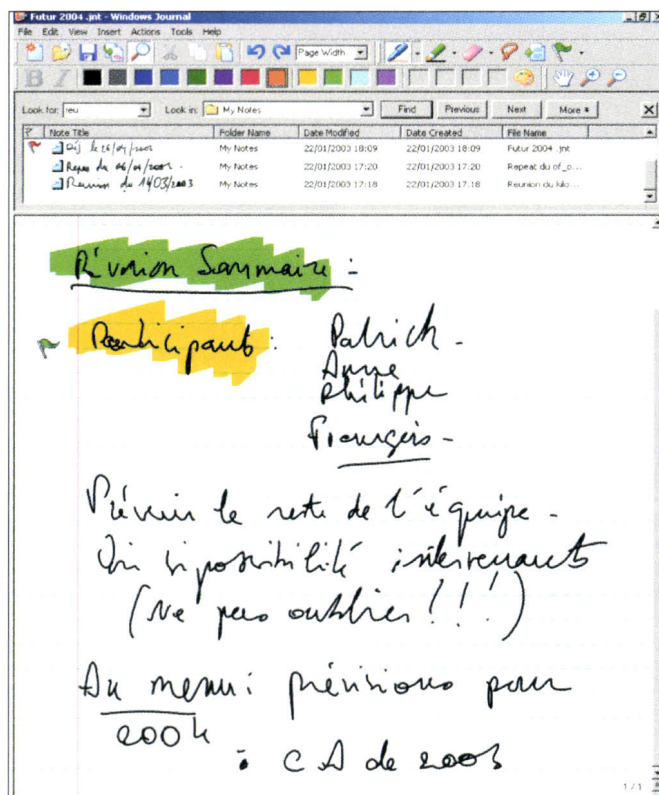 Futur 2004 .jnt - Windows Journal
File Edit View Insert Actions Tools Help
Page Width
B I
Look for: reu Look in: My Notes Find Previous Next More
Note Title Folder Name Date Modified Date Created File Name
My Notes 22/01/2003 18:09 22/01/2003 18:09 Futur 2004 .jnt
Repas du 06/01/2002 - My Notes 22/01/2003 17:20 22/01/2003 17:20 Repeat du of_o...
Reunion du 14/03/2003 My Notes 22/01/2003 17:18 22/01/2003 17:18 Reunion du kilo...
Réunion Sommaire :
Participants : Patrick -
Anne
Philippe
François -
Prévenir le reste de l'équipe -
intervenants
(Ne pas oublier !!!)
Au menu : prévisions pour
2004
: CA de 2003
1 / 1